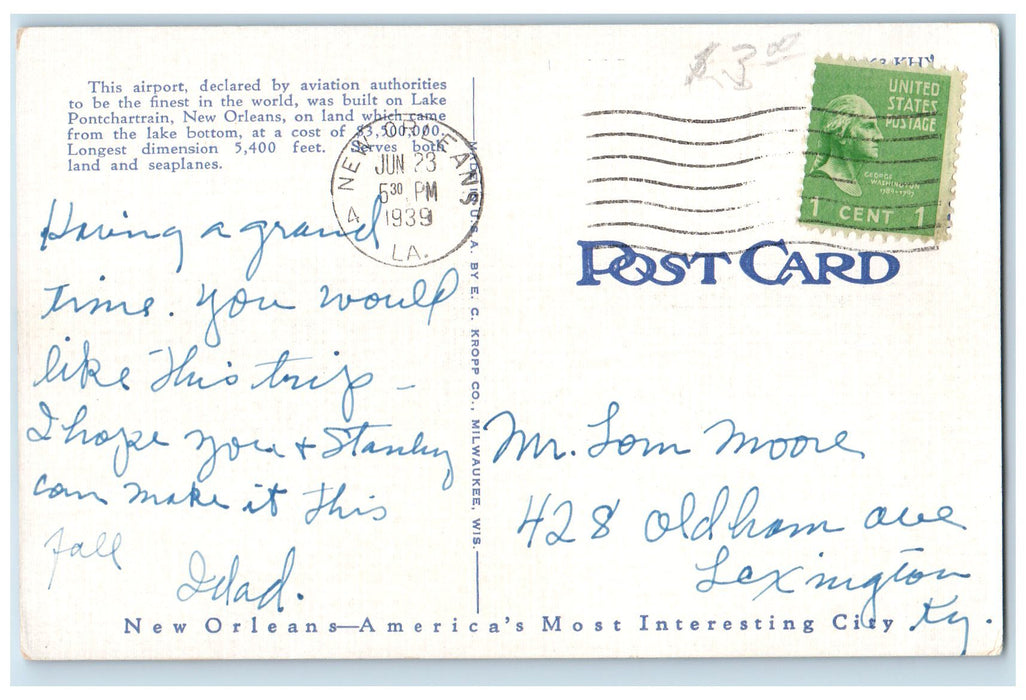 This airport, declared by aviation authorities
to be the finest in the world, was built on Lake
Pontchartrain, New Orleans, on land which came
from the lake bottom, at a cost of $3,500,000.
Longest dimension 5,400 feet. Serves both
land and seaplanes.
NEW ORLEANS
JUN 23
5 30 PM
1939
4 LA.
Having a grand
time. You would
like this trip –
I hope you + Stanley
can make it this
fall
MADE IN U.S.A. BY E. C. KROPP CO., MILWAUKEE, WIS.
$3.00
UNITED
STATES
POSTAGE
GEORGE
WASHINGTON
1789-1797
1 CENT 1
POST CARD
Mr. Tom Moore
428 Oldham ave
Lexington
Ky.
New Orleans—America's Most Interesting City